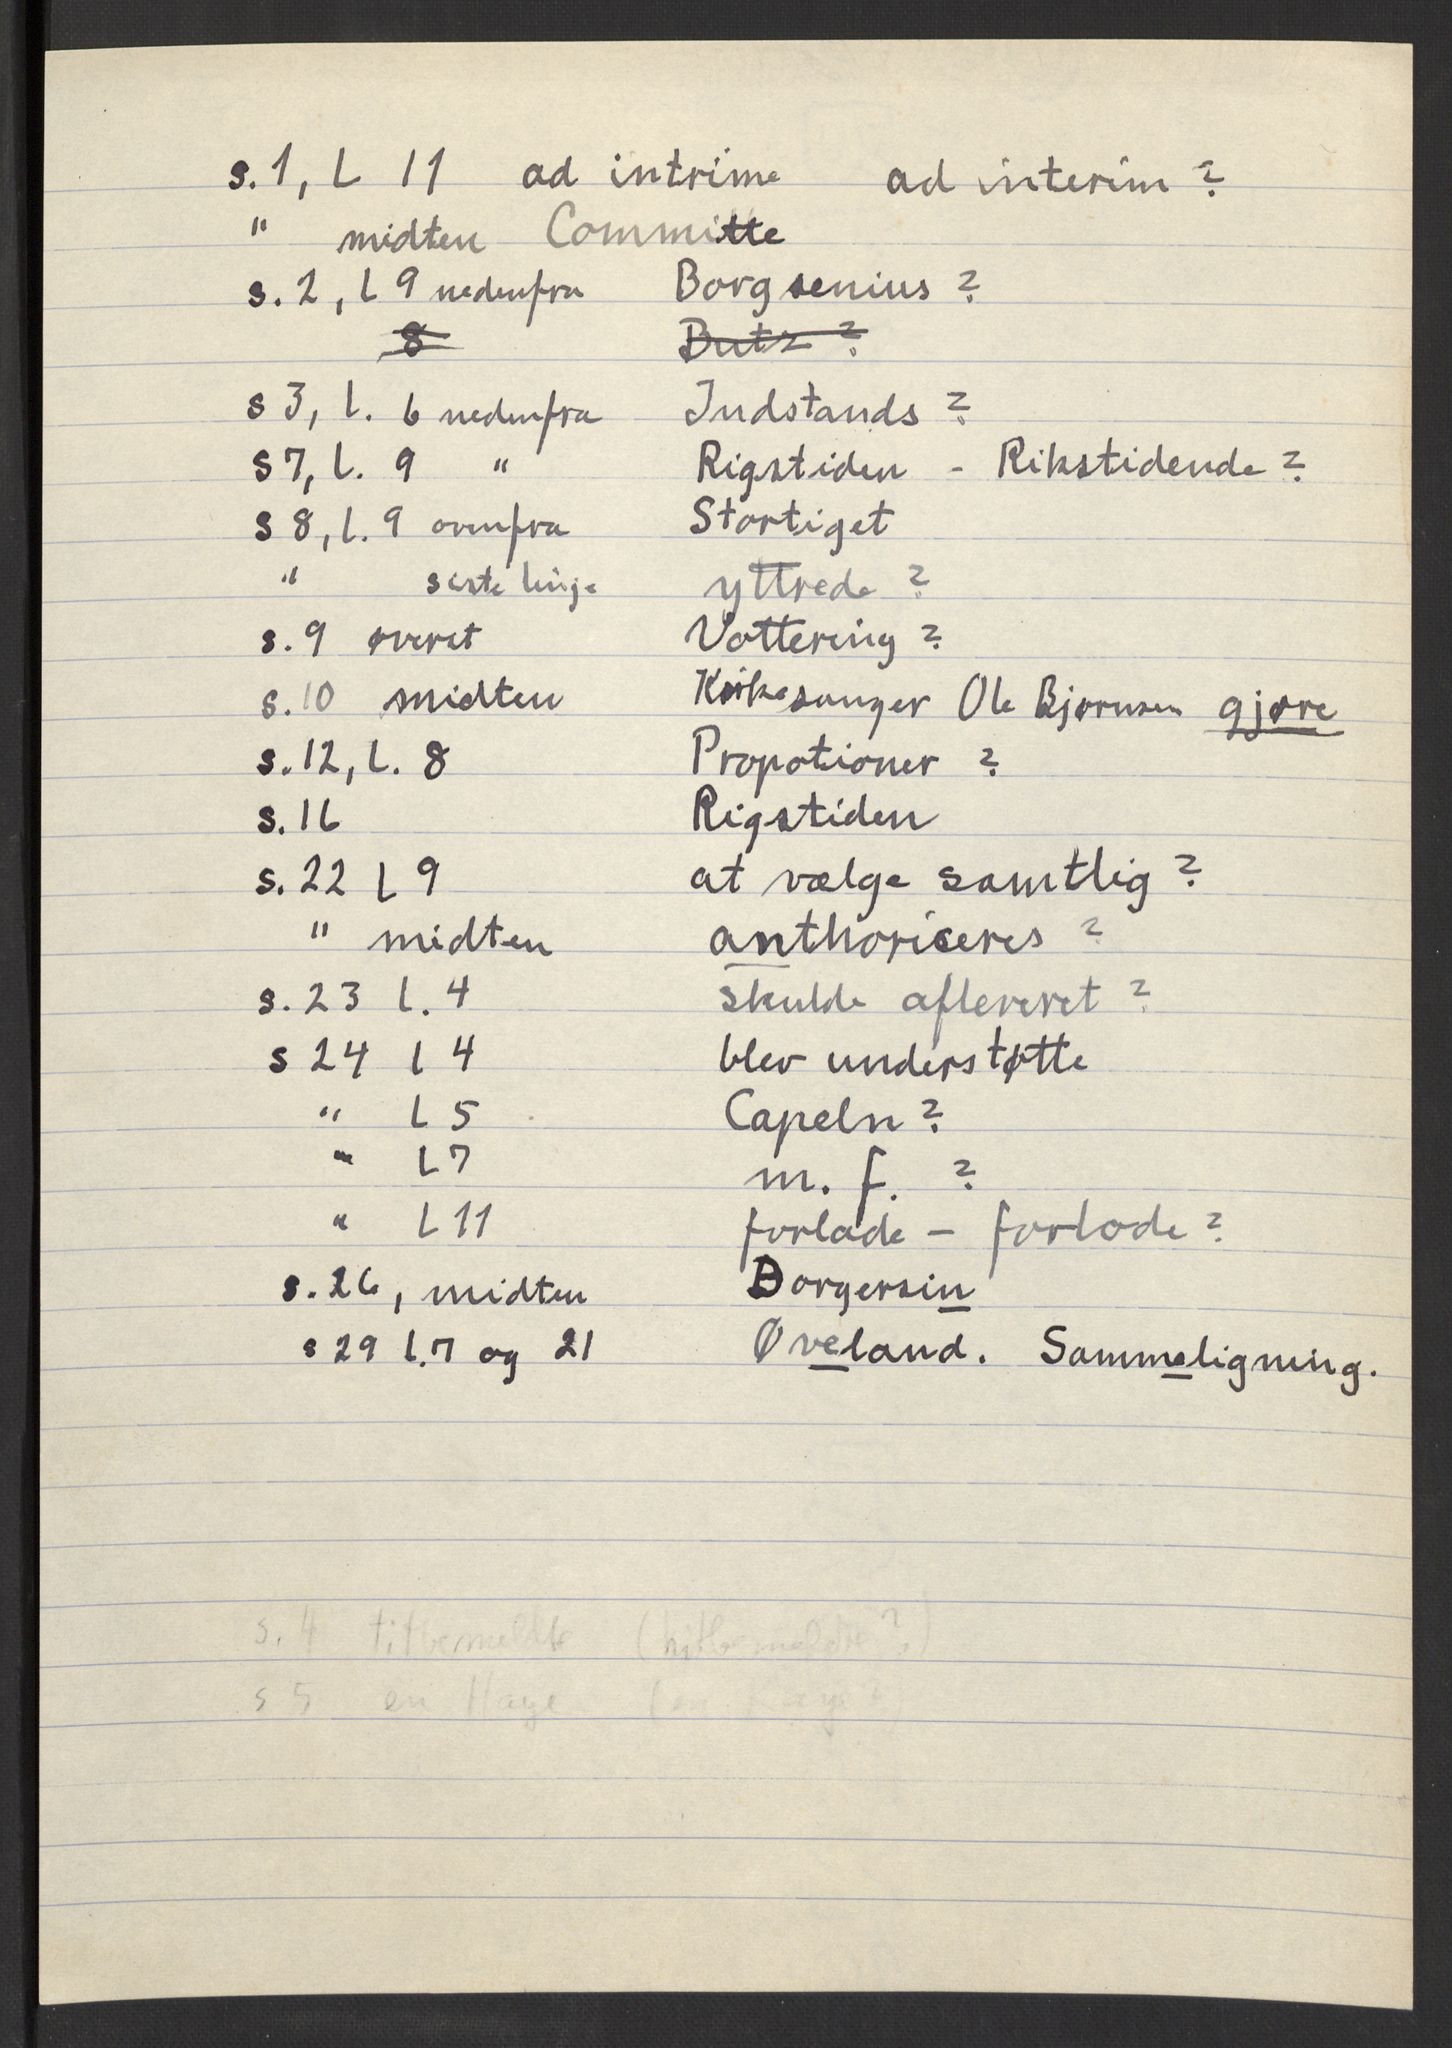 s.1, L 11 ad intrime ad interim ?
" midten Committe
s.2, l 9 nedenfra Borgsenius ?
8 Butz ?
s 3, l. 6 nedenfra Indstands ?
s 7, l. 9 " Rigstiden - Rikstidende ?
s 8, l. 9 ovenfra Stortiget
" siste linje yttrede ?
s.9 øverst Vottering ?
s.10 midten Kirkesanger Ole Bjørnsen gjøre
s.12, l. 8 Propotioner ?
s.16 Rigstiden
s.22 l 9 at vælge samtlig ?
" midten anthoriceres ?
s.23 l. 4 skulde afleveret ?
s 24 l 4 blev understøtte
" l 5 Capeln ?
" l 7 m. f. ?
" l 11 forlade - forlode ?
s.26, midten Borgersin
s 29 l.7 og 21 Øveland. Sammeligning.
s.4 titbemeldte
s 5 en Haye